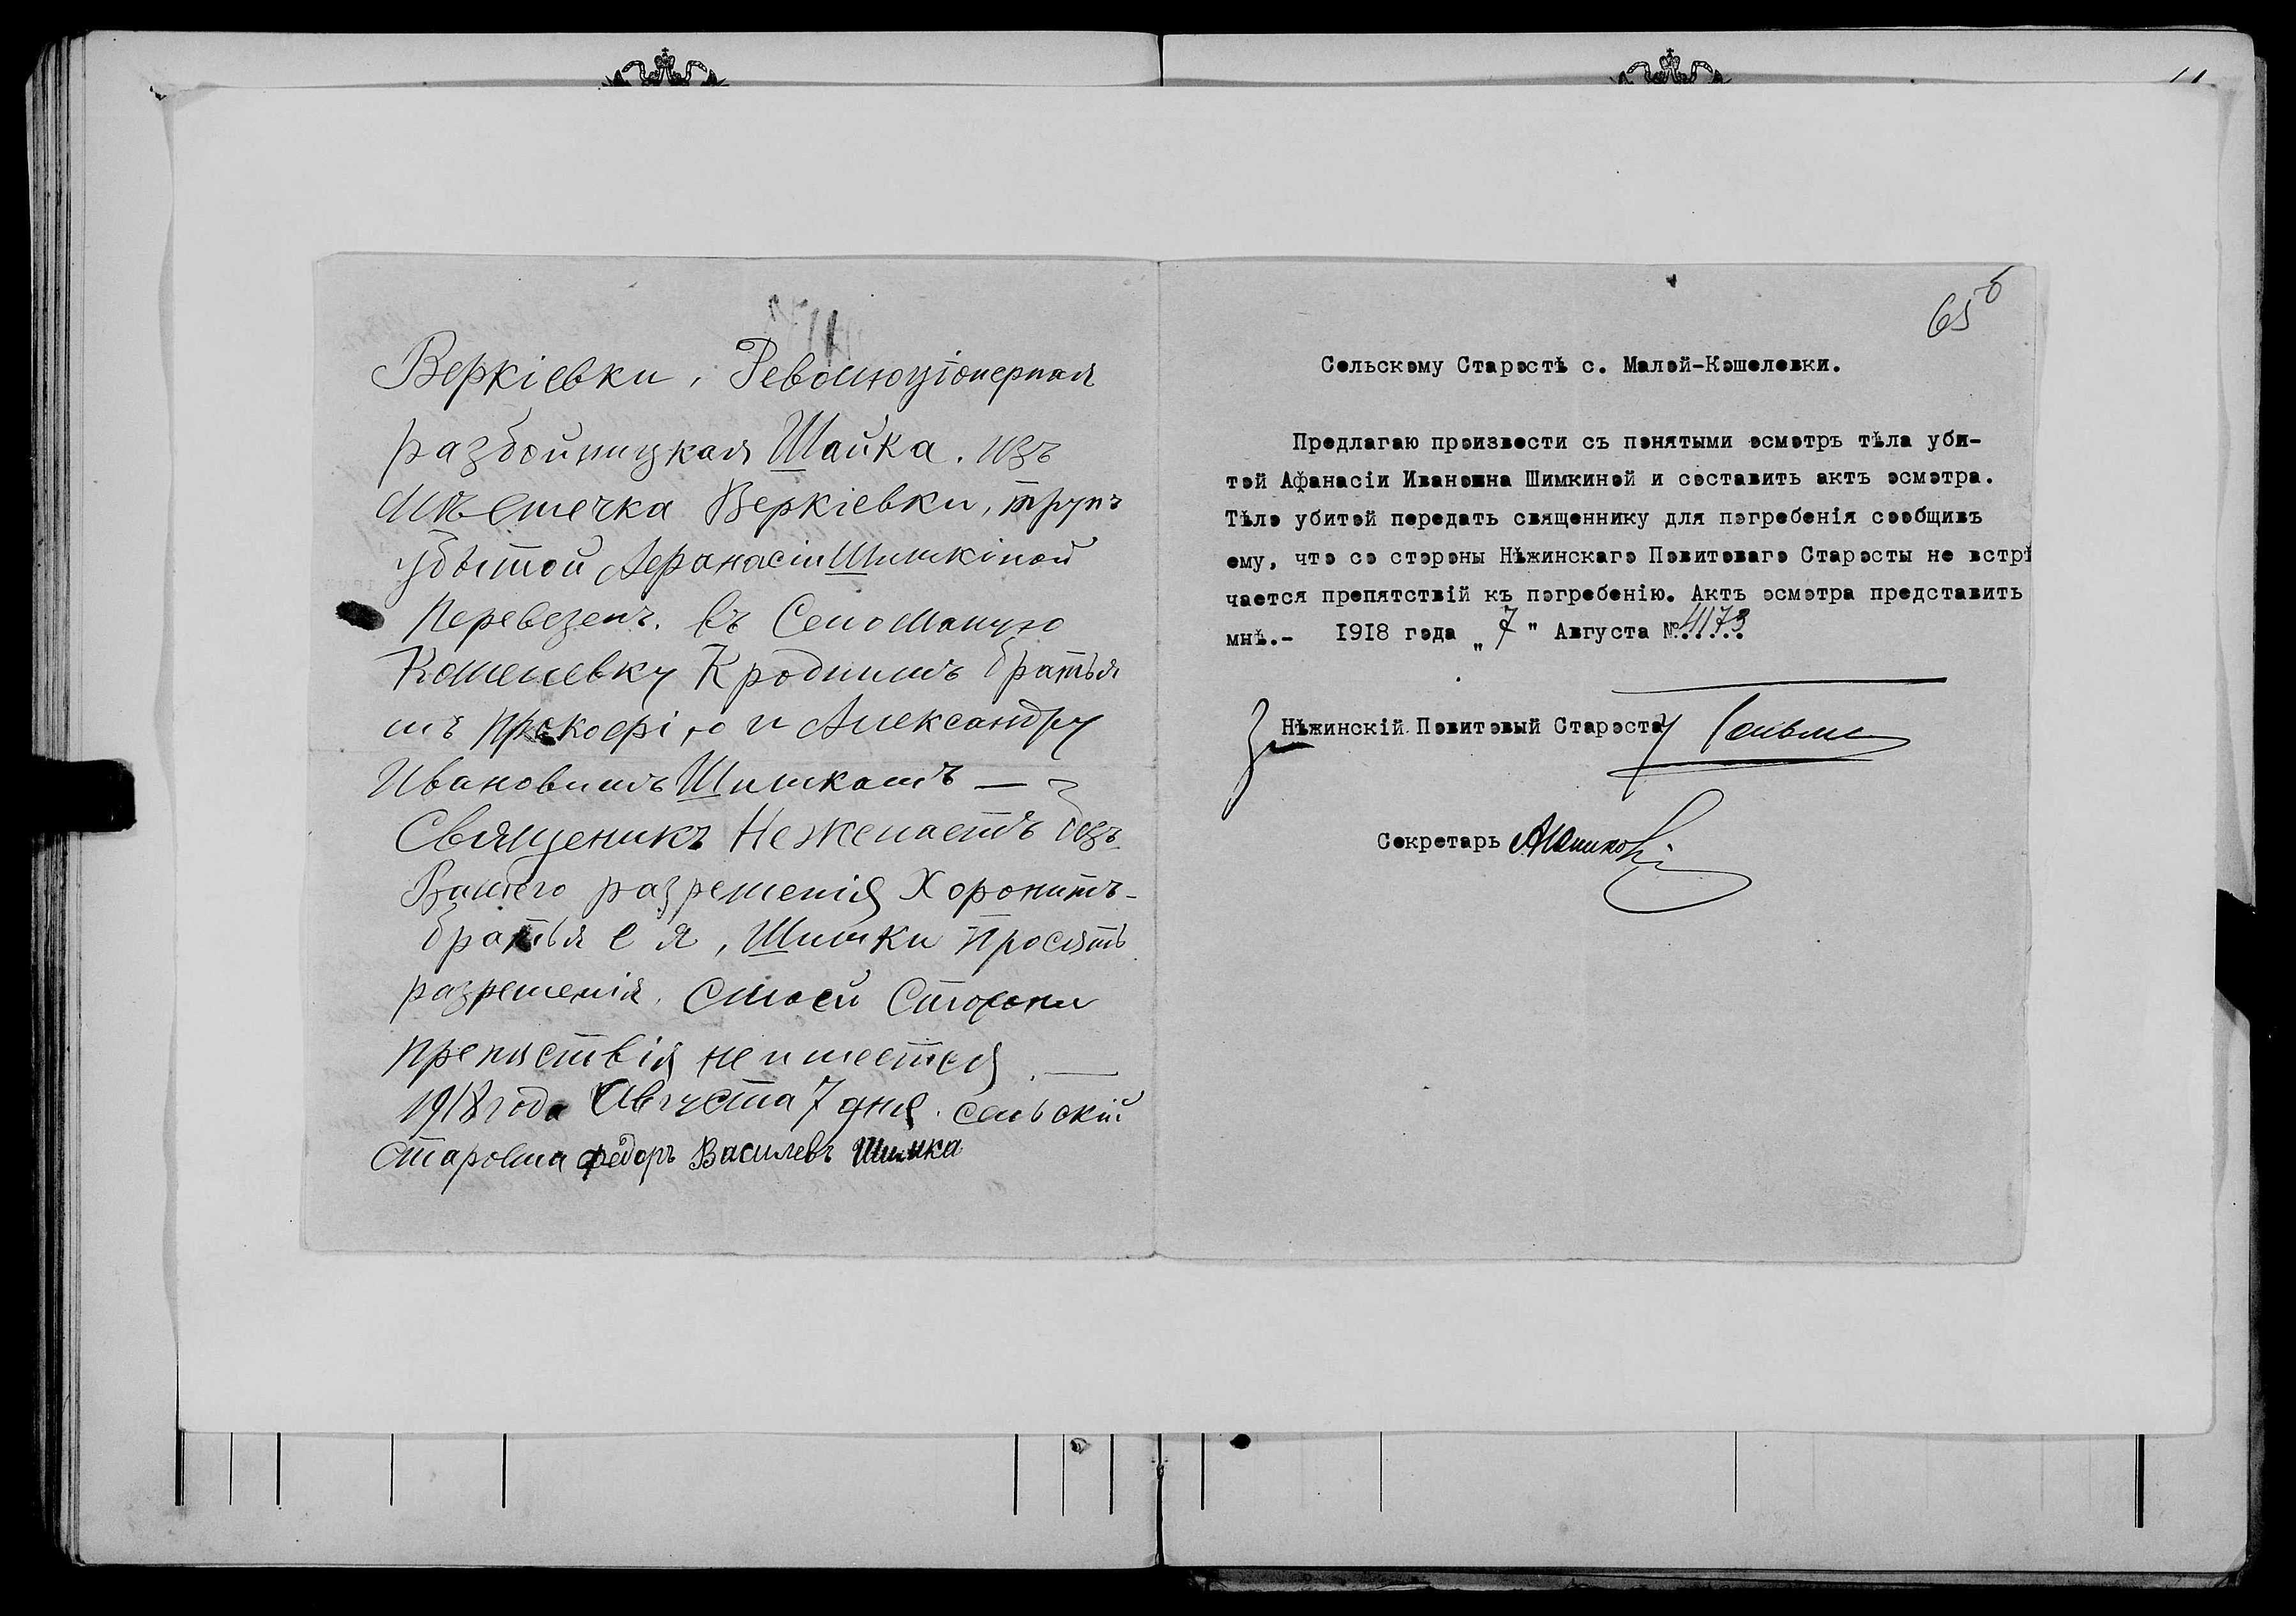 Веркіевки, Революціонерная
разбойницкая Шайка. изъ
Мѣстечка Веркіевки, трупъ
Убытой Афанасіи Шимкіной
Перевезенъ. въ Село Малую
Кошелевку К роднимъ братья
мъ Прокофію и Александру
Ивановимъ Шимкамъ —
Священикъ Не желаетъ безъ
Вашего разрешенія Хоронитъ-
братья ея, Шимки Просятъ
разрешенія. Смоей Сторони
препятствія не имеется. —
1918 года Августа 7 дня. селъскій
Староста Федоръ Василевъ Шимка
65
Сельскому Старостѣ с. Малой-Кошелевки.
Предлагаю произвести съ понятыми осмотръ тѣла уби-
той Афанасіи Ивановна Шимкиной и составить актъ осмотра.
Тѣло убитой передать священнику для погребенія сообщивъ
ему, что со стороны Нѣжинскаго Повитоваго Старосты не встрѣ
чается препятствій къ погребенію. Актъ осмотра представить
мнѣ.- 1918 года „7" Августа №4173
За Нѣжинскій Повитовый Староста
Секретарь